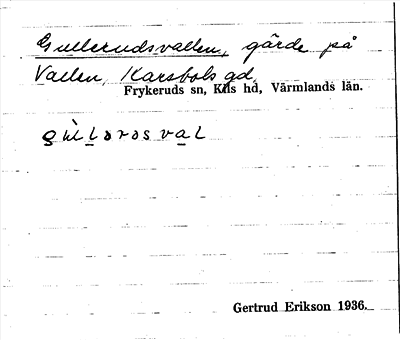 Gullerudsvallen, gärde på
Vallen, Karsbols gd,
Frykeruds sn, Kils hd, Värmlands län.
Gertrud Erikson 1936.